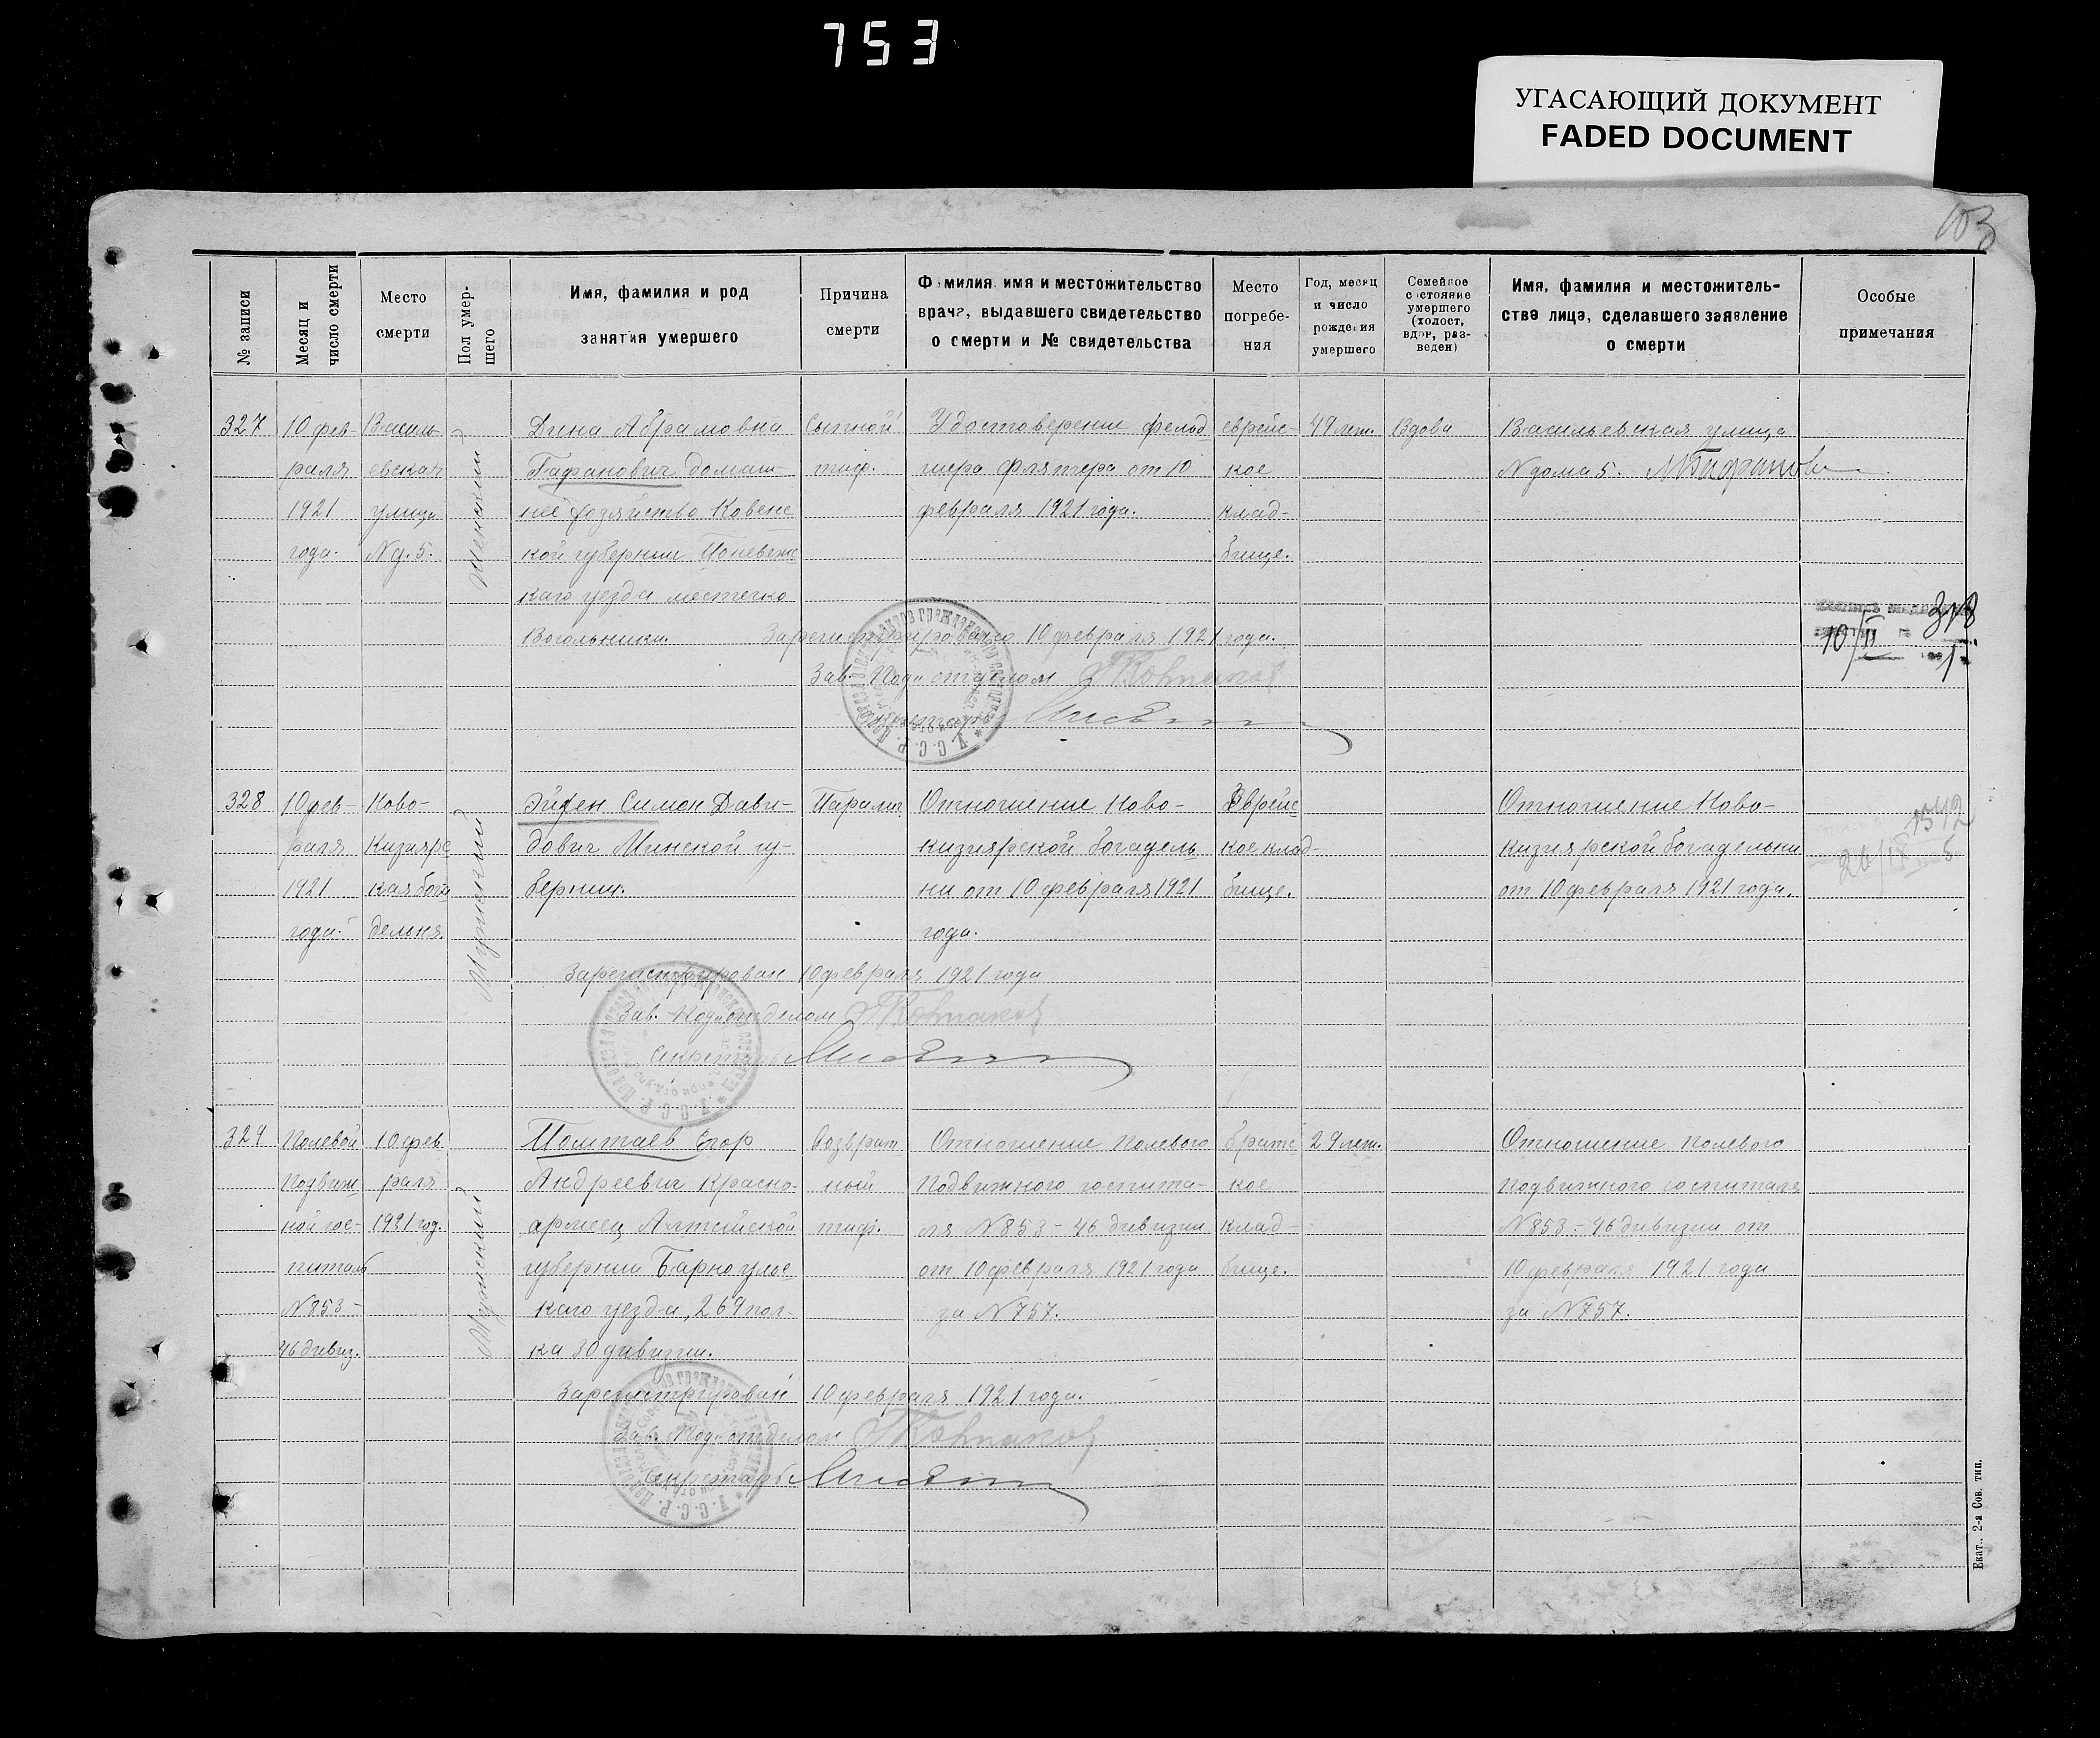 753
УГАСАЮЩИЙ ДОКУМЕНТ
FADED DOCUMENT
103
№ записи
Месяц и
число смерти
Место
смерти
Пол умер-
шего
Имя, фамилия и род
занятия умершего
Причина
смерти
Фамилия, имя и местожительство
врача, выдавшего свидетельство
о смерти и № свидетельства
Место
погребе-
ния
Год, месяц
и число
рождения
умершего
Семейное
состояние
умершего
(холост,
вдов, раз-
веден)
Имя, фамилия и местожитель-
ство лица, сделавшего заявление
о смерти
Особые
примечания
327
10 фев-
раля
1921
года.
Василь
евская
улица
N д. 5.
Женский
Дина Абрамовна
Гафанович домаш-
нее хозяйство Ковенс
кой губернии Поневеж
каго уезда местечко
Вогольники.
Сыпной
тиф.
Удостоверение фельд
шера Флятера от 10
февраля 1921 года.
еврейс-
кое
клад-
бище.
49 лет.
Вдова
Васильевская улица
N дома 5.
Зарегистрировано 10 февраля 1921 года.
Зав. Под отделом
Секретарь
10/II
318
328
10 фев-
раля
1921
года.
Ново-
Кизиярс
кая бога
дельня.
Мужской
Эйхен Симон Дави-
дович Минской гу-
бернии.
Паралич
Отношение Ново-
кизиярской богадель
ни от 10 февраля 1921
года.
Еврейс
кое клад-
бище.
Отношение Ново-
кизиярской богадельни
от 10 февраля 1921 года.
1542
26/IX
Зарегистрирован 10 февраля 1921 года
Зав. Подотделом
Секретарь
329
Полевой
Подвиж
ной гос-
питаль
N 853-
46 дивиз.
10 фев
раля
1921 год.
Мужской
Полтаев Егор
Андреевич красно-
армеец Алтайской
губернии Барнаульс
каго уезда, 269 пол-
ка 30 дивизии.
Возврат
ный
тиф.
Отношение Полевого
Подвижного госпита-
ля N 853 - 46 дивизии
от 10 февраля 1921 года
за N 757.
братс
кое
клад-
бище.
29 лет.
Отношение полевого
подвижного госпиталя
N 853 - 46 дивизии от
10 февраля 1921 года
за N 757.
Зарегистрирован 10 февраля 1921 года.
Зав. Подотделом
Секретарь
Екат., 2-я Сов. тип.